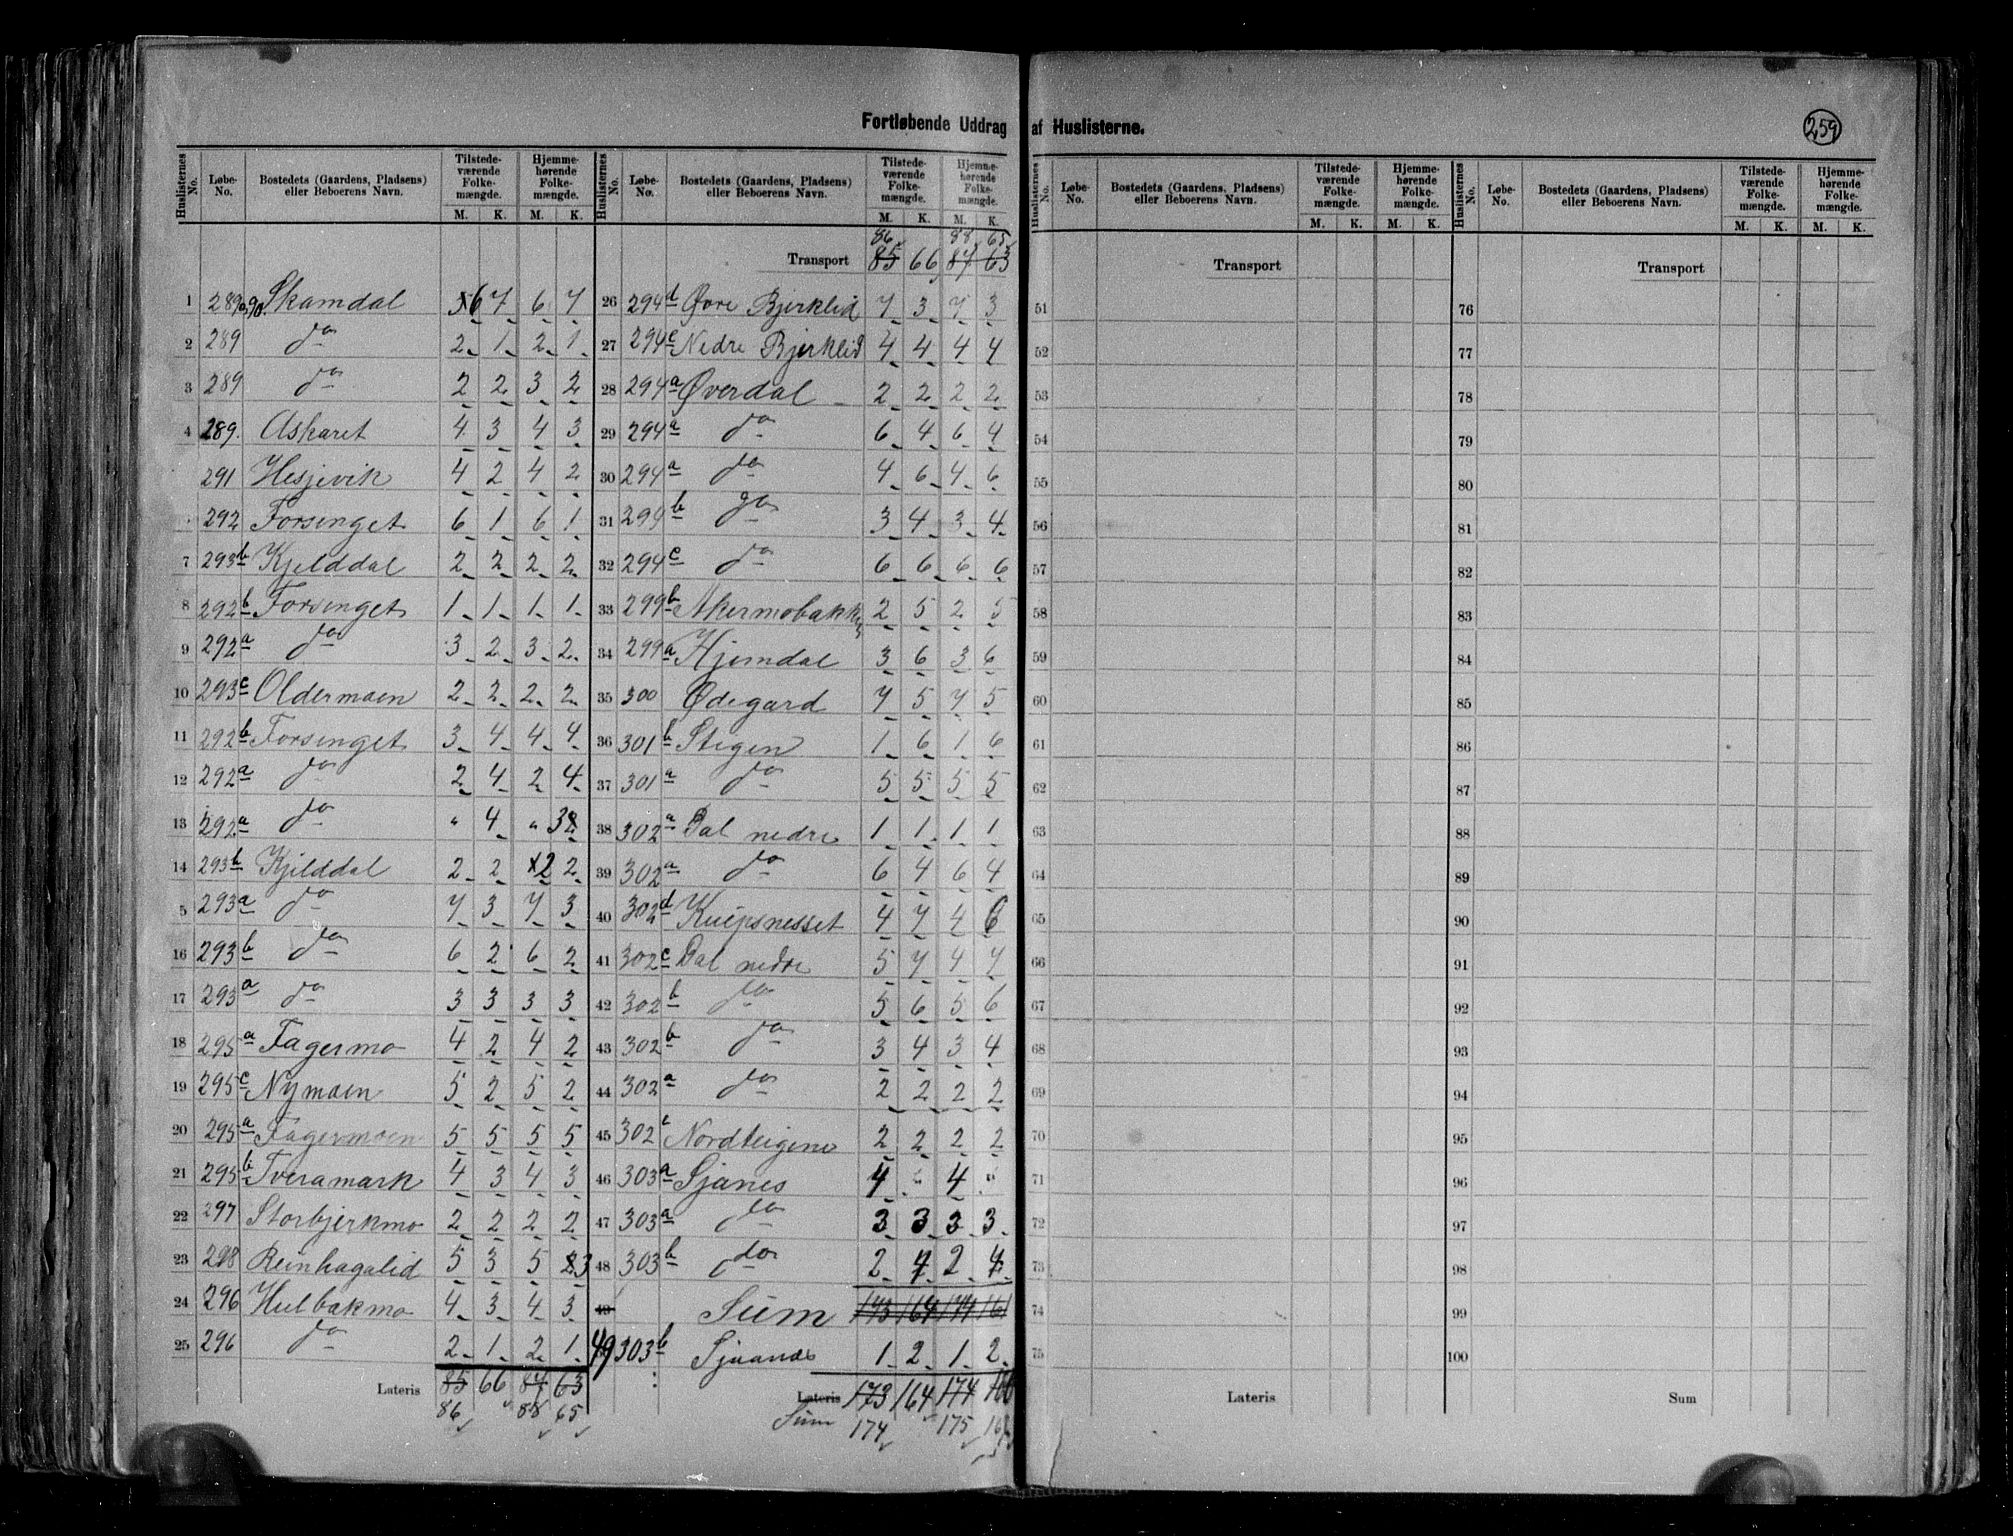 Fortløbende Uddrag af Huslisterne.
259
Huslisternes No. Løbe-No. Bostedets (Gaardens, Pladsens) eller Beboerens Navn. Tilstedeværende Folkemængde. M. K. Hjemmehørende Folkemængde. M. K.
1 289,90. Skamdal 6 7 6 7
2 289 do 2 1 2 1
3 289 do 2 2 3 2
4 289. Askaret 4 3 4 3
291 Hesjevik 4 2 4 2
292 Forsinget 6 1 6 1
7 293b Kjelddal 2 2 2 2
8 292b Forsinget 1 1 1 1
9 292a do 3 2 3 2
10 293c Oldermoen 2 2 2 2
11 292b Forsinget 3 4 4 4
12 292a do 2 4 2 4
13 292a do " 4 " 3
14 293b Kjelddal 2 2 2 2
5 293a do 7 3 7 3
16 293b do 6 2 6 2
17 293a do 3 3 3 3
18 295a Fagermo 4 2 4 2
19 295c Nymoen 5 2 5 2
20 295a Fagermoen 5 5 5 5
21 295b Tveramark 4 3 4 3
22 297 Storbjerkmo 2 2 2 2
23 298 Reinhagalid 5 3 5 3
24 296 Hulbakmo 4 3 4 3
25 296 do 2 1 2 1
Lateris 85 66 87 63
86 88 65
Huslisternes No. Løbe-No. Bostedets (Gaardens, Pladsens) eller Beboerens Navn. Tilstedeværende Folkemængde. M. K. Hjemmehørende Folkemængde. M. K.
86 88 65
Transport 85 66 87 63
26 294d Øvre Bjerklid 7 3 7 3
27 294c Nedre Bjerklid 4 4 4 4
28 294a Øverdal 2 2 2 2
29 294a do 6 4 6 4
30 294a do 4 6 4 6
31 294b do 3 4 3 4
32 294c do 6 6 6 6
33 299b Akermobakken 2 5 2 5
34 299a Hjemdal 3 6 3 6
35 300 Ødegard 7 5 7 5
36 301b Stigen 1 6 1 6
37 301a do 5 5 5 5
38 302a Dal nedre 1 1 1 1
39 302a do 6 4 6 4
40 302d Kuipsnesset 4 7 4 6
41 302c Dal nedre 5 7 4 7
42 302b do 5 6 5 6
43 302b do 3 4 3 4
44 302a do 2 2 2 2
45 302c Nordteigene 2 2 2 2
46 303a Sjånes 4 " 4 "
47 303a do 3 3 3 3
48 303b do 2 4 2 4
49 Sum 173 164 174 161
49 303b Sjaanes 1 2 1 2
Lateris 173 164 174
Sum 174 175
Huslisternes No. Løbe-No. Bostedets (Gaardens, Pladsens) eller Beboerens Navn. Tilstedeværende Folkemængde. M. K. Hjemmehørende Folkemængde. M. K.
Transport
51
52
53
54
55
56
57
58
59
60
61
62
63
64
65
66
67
68
69
70
71
72
73
74
75
Lateris
Huslisternes No. Løbe-No. Bostedets (Gaardens, Pladsens) eller Beboerens Navn. Tilstedeværende Folkemængde. M. K. Hjemmehørende Folkemængde. M. K.
Transport
76
77
78
79
80
81
82
83
84
85
86
87
88
89
90
91
92
93
94
95
96
97
98
99
100
Sum